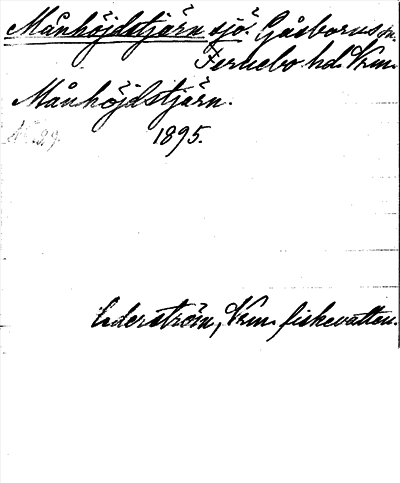 Månhöjdstjärn sjö. Gåsborns sn.
Fernebo hd. Vrm.
Månhöjdstjärn.
1895.
Cederström, Vrm. fiskevatten.